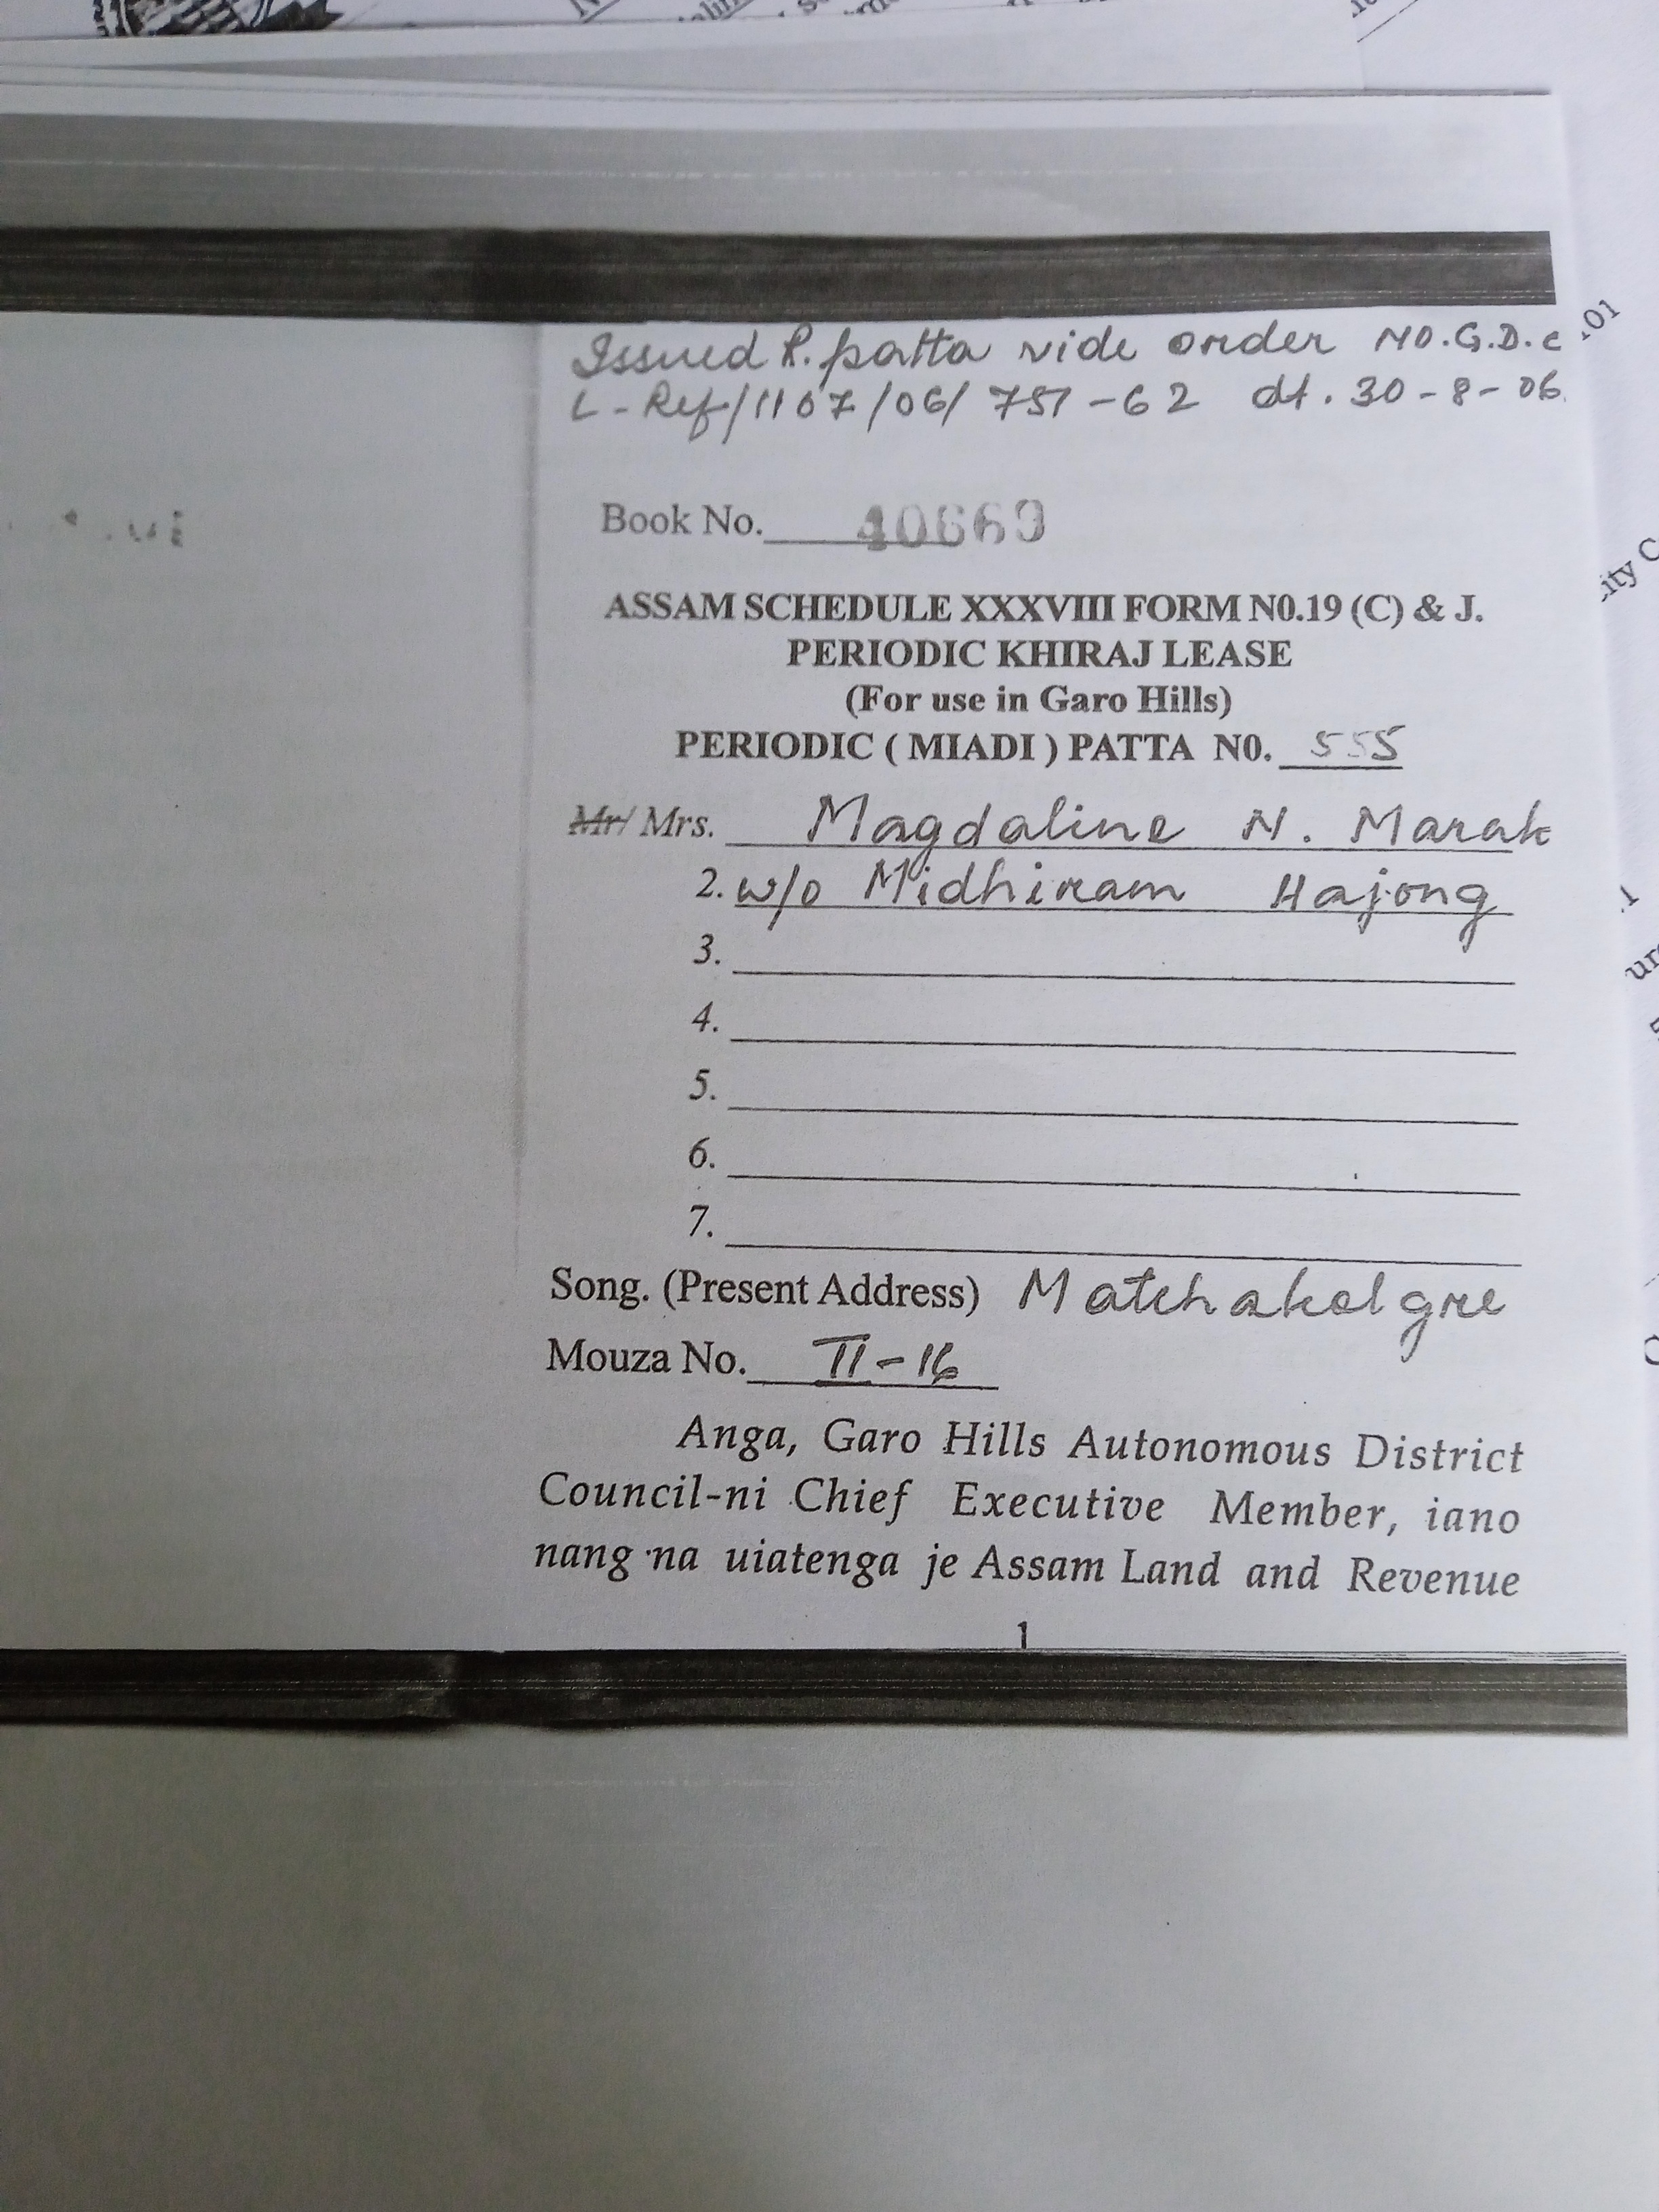 Issued P. patta vide order NO.G.D.C
L-Ref/1107/06/751-62 dt. 30-8-06.
Book No. 40669
ASSAM SCHEDULE XXXVIII FORM N0.19 (C) & J.
PERIODIC KHIRAJ LEASE
(For use in Garo Hills)
PERIODIC ( MIADI ) PATTA N0. 555
Mr/ Mrs. Magdaline N. Marak
2. w/o Midhiram Hajong
3.
4.
5.
6.
7.
Song. (Present Address) Matchakolgre
Mouza No. II-16
Anga, Garo Hills Autonomous District
Council-ni Chief Executive Member, iano
nang·na uiatenga je Assam Land and Revenue
1